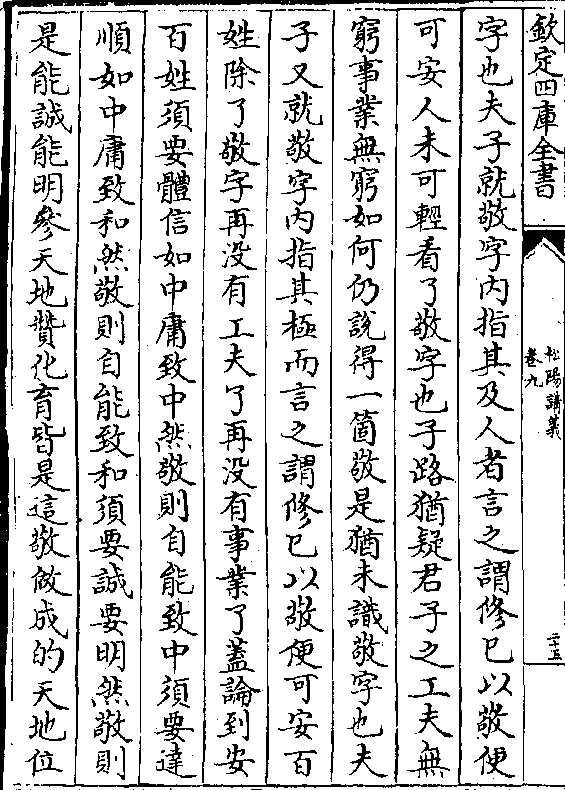 欽定四庫全書
松陽講義
卷九
二十五
字也夫子就敬字内指其及人者言之謂修已以敬便
可安人未可輕看了敬字也子路猶疑君子之工夫無
窮事業無窮如何仍說得一箇敬是猶未識敬字也夫
子又就敬字内指其極而言之謂修已以敬便可安百
姓除了敬字再没有工夫了再没有事業了蓋論到安
百姓須要體信如中庸致中然敬則自能致中須要達
順如中庸致和然敬則自能致和須要誠要明然敬則
是能誠能明參天地贊化育皆是這敬做成的天地位